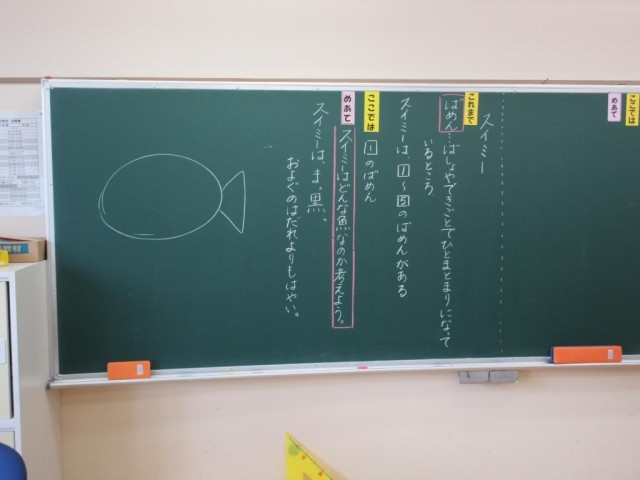 ここでは
めあて
スイミー
これまで
ばめん…ばしょやできごとでひとまとまりになって
いるところ
スイミーは、1～5のばめんがある
ここでは
1のばめん
めあて
スイミーはどんな魚なのか考えよう。
スイミーは、ま、黒。
およぐのはだれよりもはやい。